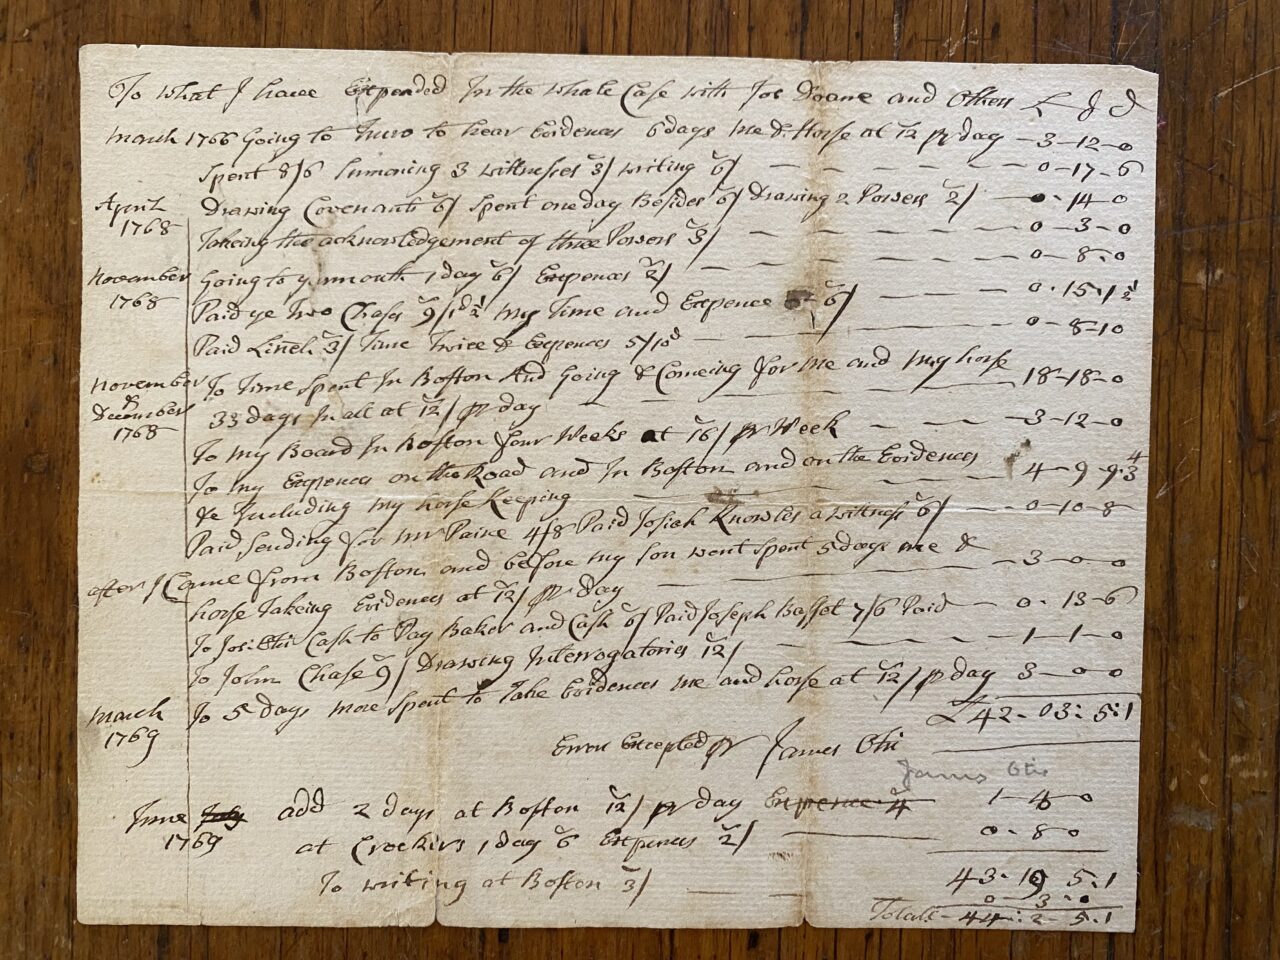 To what I have Expended In the whale Case with Joe Doane and Others £ S D
march 1766 Going to Truro to hear Evidences 6 days me & Horse at 12 pr day — 3-12-0
Spent 8/6 Sumoning 3 wittnesses 3/ writing 6/ — 0-17-6
April Drawing Covenants 6/ Spent one day Besides 6/ Drawing 2 Powers 2/ — 0-14-0
1768 Takeing the acknowledgement of three Powers 3/ — 0-3-0
November Going to yarmouth 1 day 6/ Expences 2/ — 0-8-0
1768 Paid ye Two Chases 9/1d½ my Time and Expence 6/ — 0-15-1½
Paid Linel 3/ Time Twice & Expences 5/10d — 0-8-10
November To Time Spent In Boston And Going & Comeing for me and my horse
& December 33 days In all at 12/ pr day — 18-18-0
1768 To my Board In Boston four Weeks at 16/ pr Week — 3-12-0
To my Expences on the Road and In Boston and on the Evidences
&c Including my horse Keeping — 4-9-9¾
Paid Sending for mr Paine 4/8 Paid Josiah Knowles a wittness 6/ — 0-10-8
after I Came from Boston and before my son went Spent 5 days me &
horse Takeing Evidences at 12/ pr day — 3-0-0
To Cash to Pay Baker and Cash 6/ Paid Joseph Basset 7/6 Paid — 0-13-6
To John Chase 9/ Drawing Interrogatories 12/ — 1-1-0
march To 5 days more Spent to Take Evidences me and horse at 12/ pr day 3-0-0
1769 £42-03:5:1
Errors Excepted pr James Otis
James Otis
June July add 2 days at Boston 12/ pr day Expence 4 1-4-0
1769 at Crockers 1 day 6 Expences 2/ — 0-8-0
43-19 5:1
To writing at Boston 3/ — 0-3-0
Totall-44:2-5:1